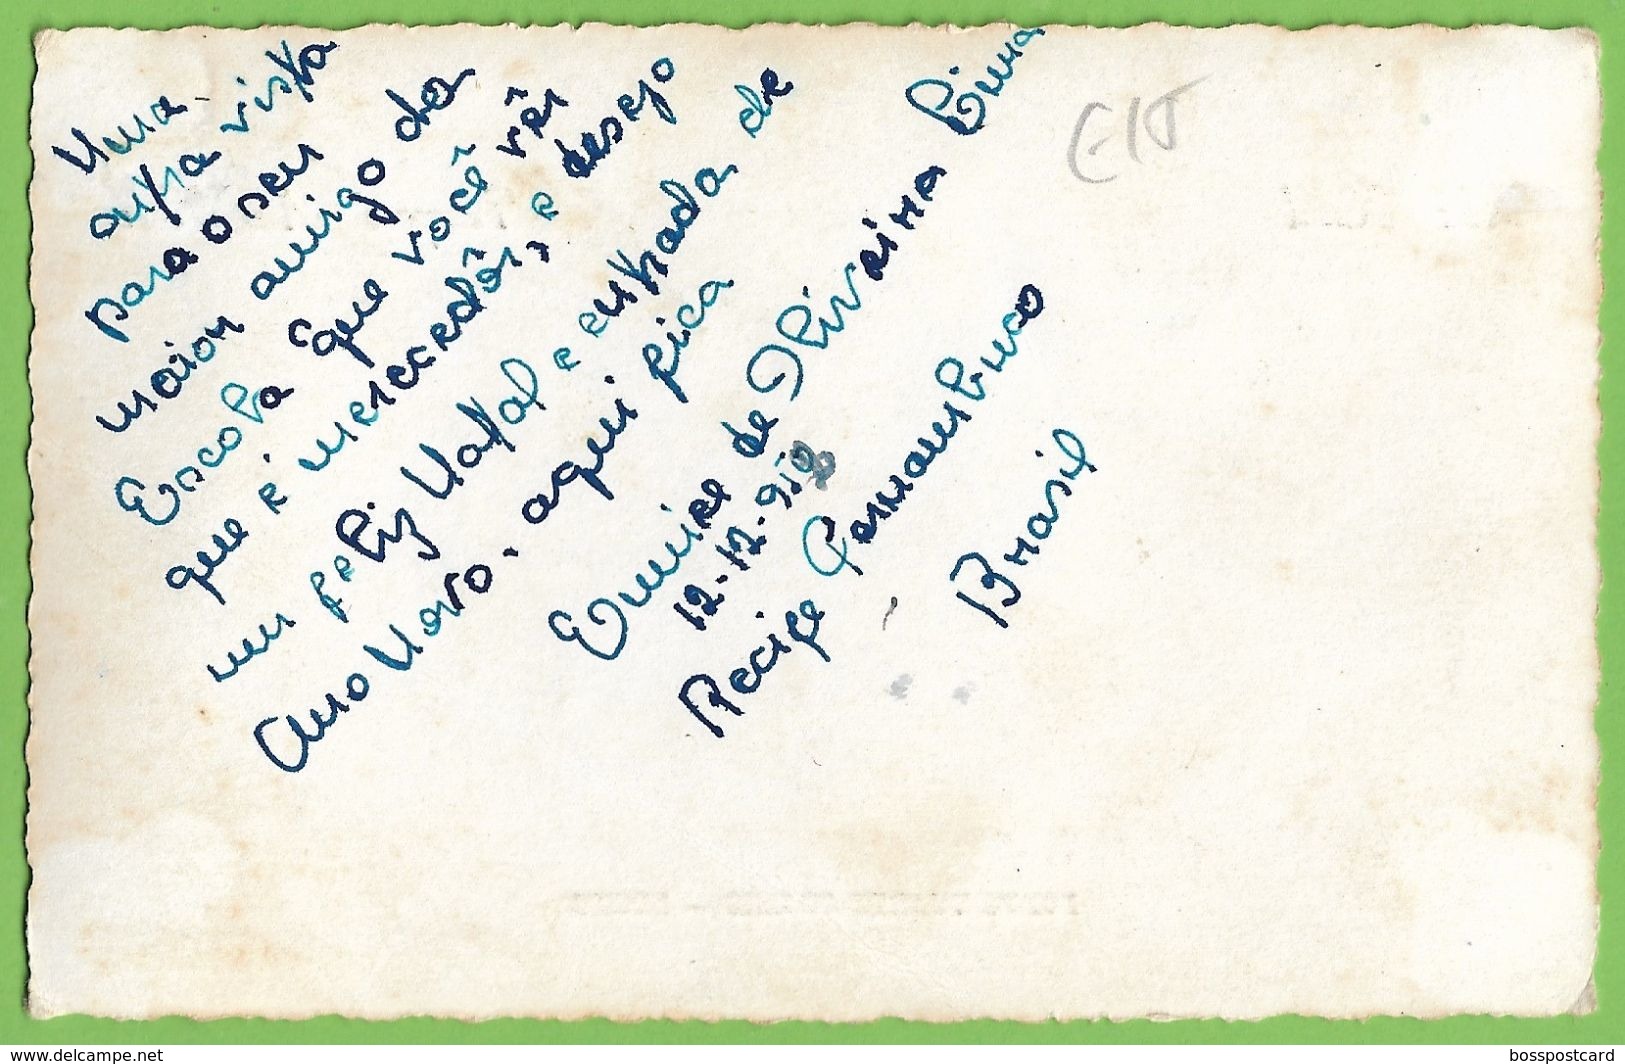 Uma
outra vista
para o seu
maior amigo da
Escola que você vêr
que é merecedôr, e desejo
um feliz Natal e entrada de
Ano Novo. aqui fica
de Oliveira Lima
12-12-95
Recife Pernambuco
Brasil
E15
www.delcampe.net
bosspostcard